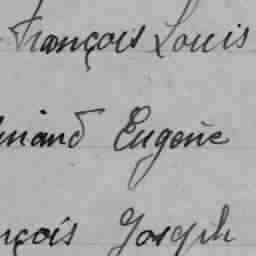 François Louis
inand Eugène
nçois Joseph